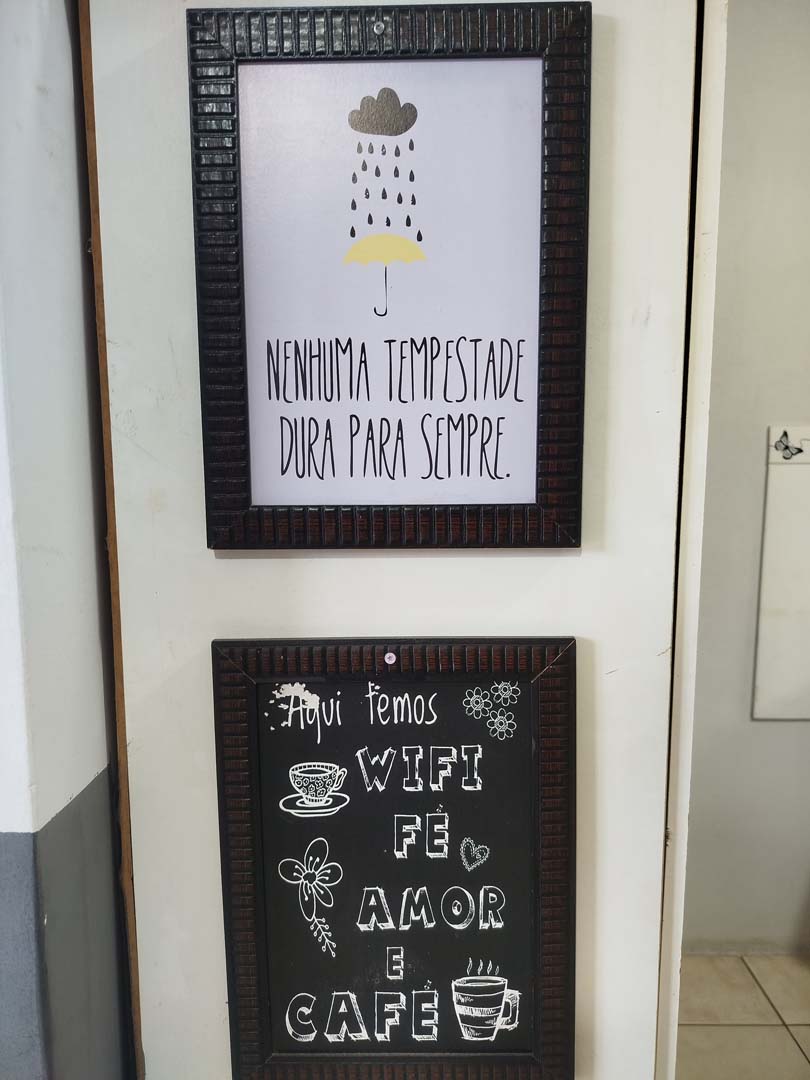 NENHUMA TEMPESTADE
DURA PARA SEMPRE.
Aqui temos
WIFI
FÉ
AMOR
E
CAFÉ